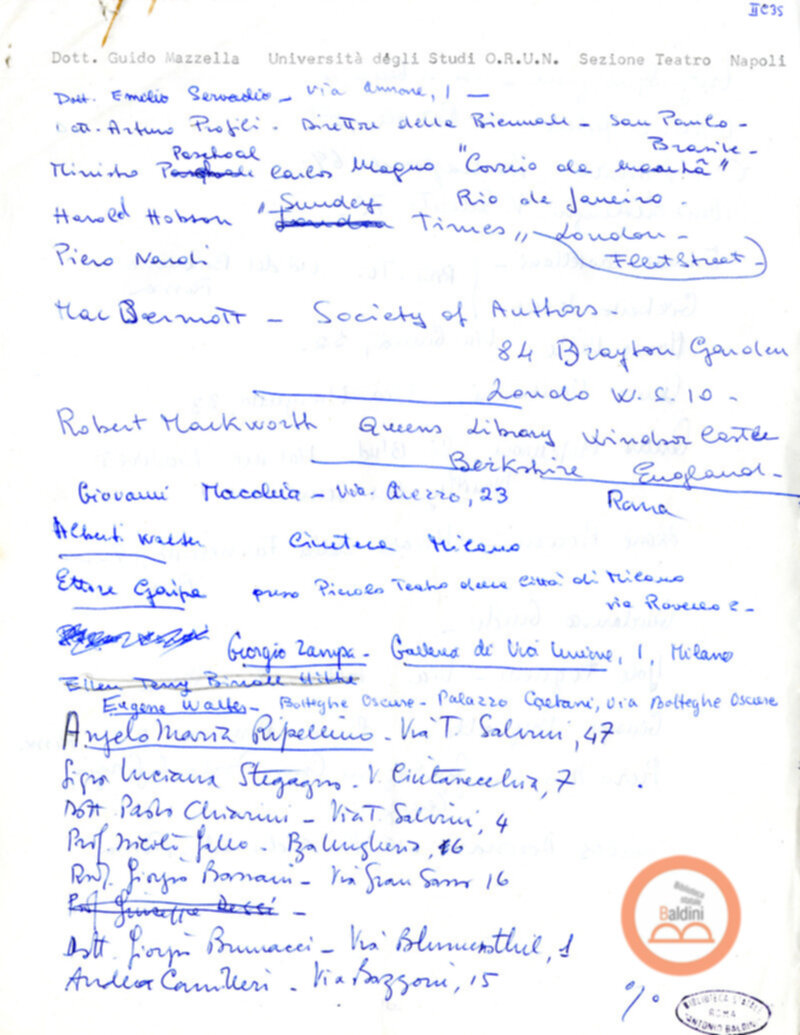 II C 35
Dott. Guido Mazzella Università dégli Studi O.R.U.N. Sezione Teatro Napoli
Dott. Emilio Servadio - Via Annone, 1 -
Dott. Arturo Profili - Direttore della Biennale - San Paulo -
Brasile -
Paschoal
Ministro Carlos Magno "Correio da Manhã"
Rio de Janeiro -
Sunday
Harold Hobson " London Times" London -
Piero Nardi Fleet Street -
Mac Dermott - Society of Authors -
84 Brayton Garden
Londo W. S 10 -
Robert Mackworth Queens Library Windsor Castle
Berkshire England -
Giovanni Macchia - Via Arezzo, 23 Roma
Alberti Walter Cineteca Milano
Ettore Gaipa presso Piccolo Teatro della Città di Milano
via Rovello 2 -
Giorgio Zampa - Galleria di Via Unione, 1, Milano
Ellen Terry
Eugene Walter - Botteghe Oscure - Palazzo Caetani, Via Botteghe Oscure
Angelo Maria Ripellino - Via T. Salvini, 47
Sig.ra Luciana Stegagno - V. Civitavecchia, 7
Dott. Paolo Chiarini - Via T. Salvini, 4
Prof. Nicolò Gallo - 16
Prof. Giorgio Bassani - Via Gran Sasso 16
Prof. Giuseppe Dessì -
Dott. Giorgio Brunacci - Via Blumensthil, 1
Andrea Camilleri - Via Bazzoni, 15
%
Biblioteca
statale
Baldini
BIBLIOTECA STATALE
ROMA
"ANTONIO BALDINI"